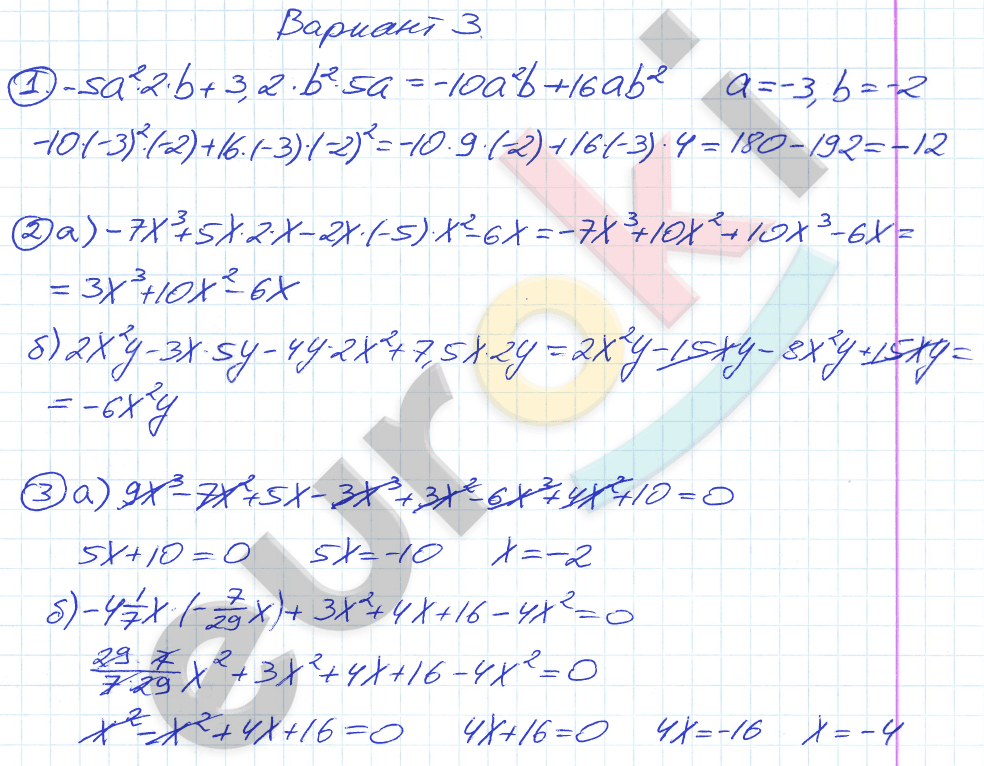 Вариант 3.
① -5a²·2·b + 3,2·b²·5a = -10a²b + 16ab² a = -3, b = -2
-10·(-3)²·(-2) + 16·(-3)·(-2)² = -10·9·(-2) + 16·(-3)·4 = 180 - 192 = -12
② а) -7x³ + 5x·2·x - 2x·(-5)·x² - 6x = -7x³ + 10x² + 10x³ - 6x =
= 3x³ + 10x² - 6x
б) 2x²y - 3x·5y - 4y·2x² + 7,5x·2y = 2x²y - 15xy - 8x²y + 15xy =
= -6x²y
③ а) 9x³ - 7x² + 5x - 3x³ + 3x² - 6x³ + 4x² + 10 = 0
5x + 10 = 0 5x = -10 x = -2
б) -4 1/7 x·(-7/29 x) + 3x² + 4x + 16 - 4x² = 0
29·7/7·29 x² + 3x² + 4x + 16 - 4x² = 0
x² - x² + 4x + 16 = 0 4x + 16 = 0 4x = -16 x = -4
euroki